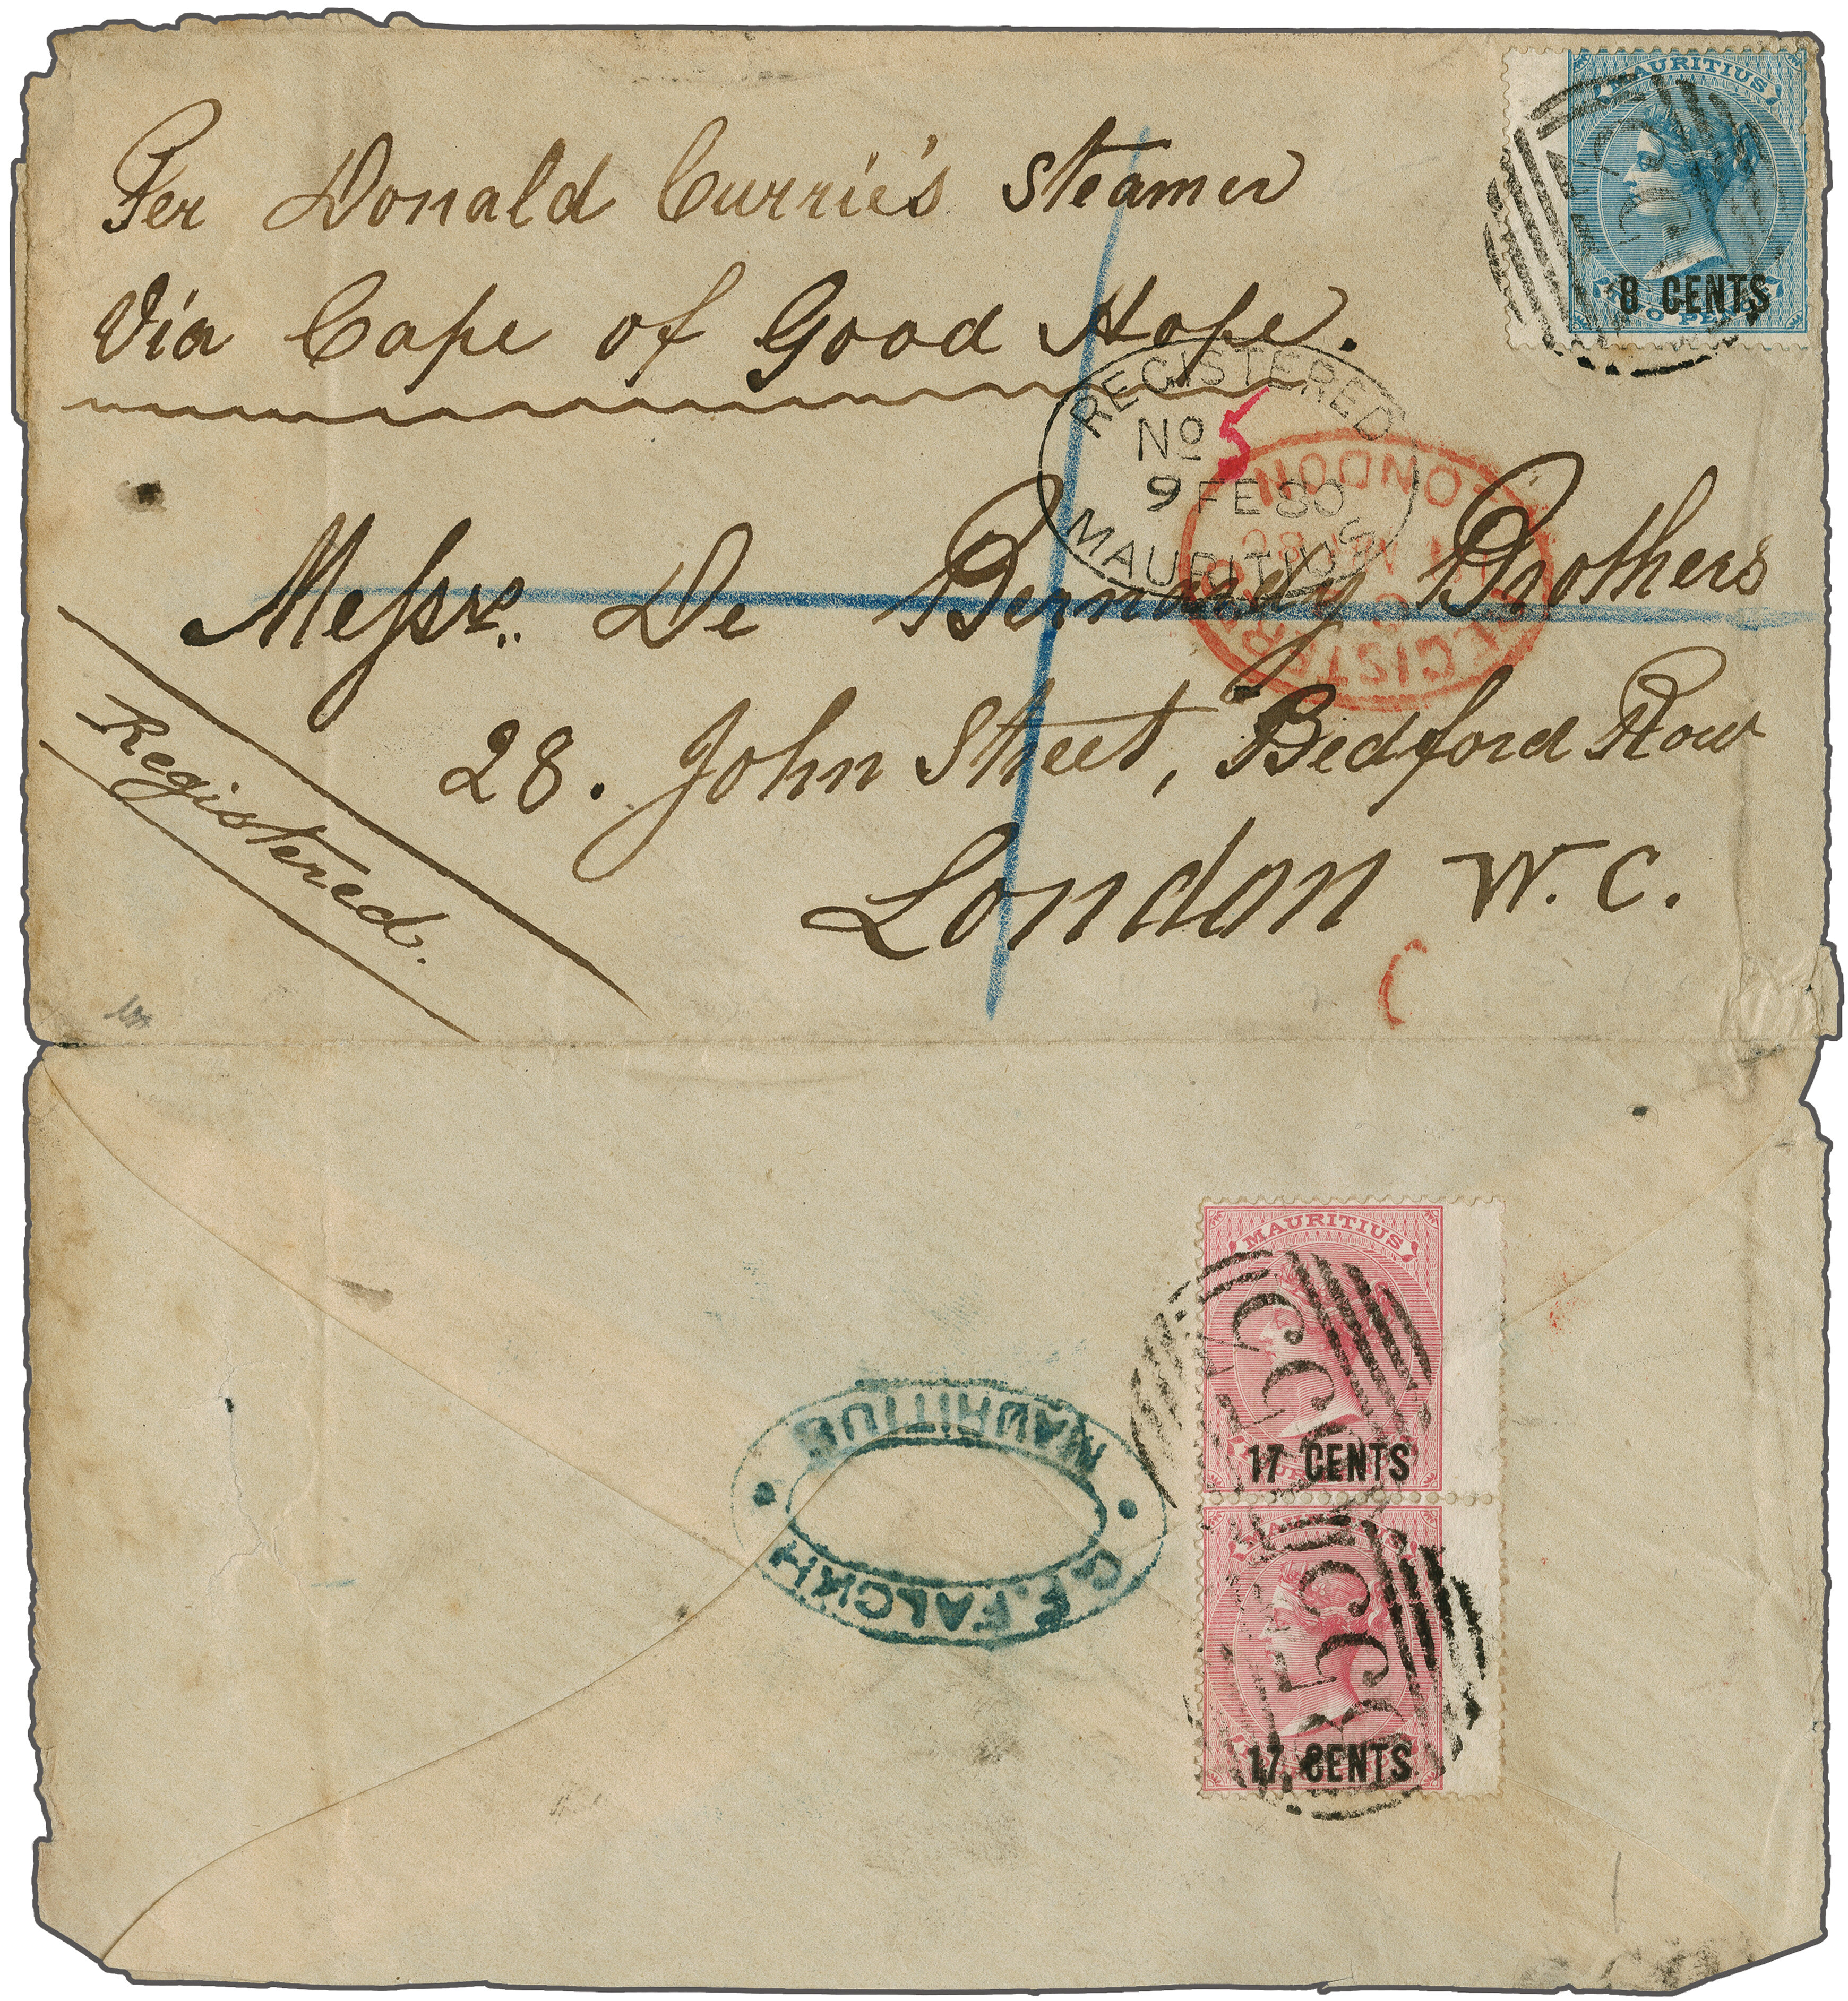 Per Donald Currie's Steamer
Via Cape of Good Hope.
MAURITIUS
8 CENTS
TWO PENCE
REGISTERED
No 5
9 FE 80
MAURITIUS
LONDON
REGISTERED
Messrs. De Bernardy Brothers
28. John Street, Bedford Row
London W. C.
Registered.
MAURITIUS
17 CENTS
MAURITIUS
17 CENTS
C. E. FALCKH
MAURITIUS